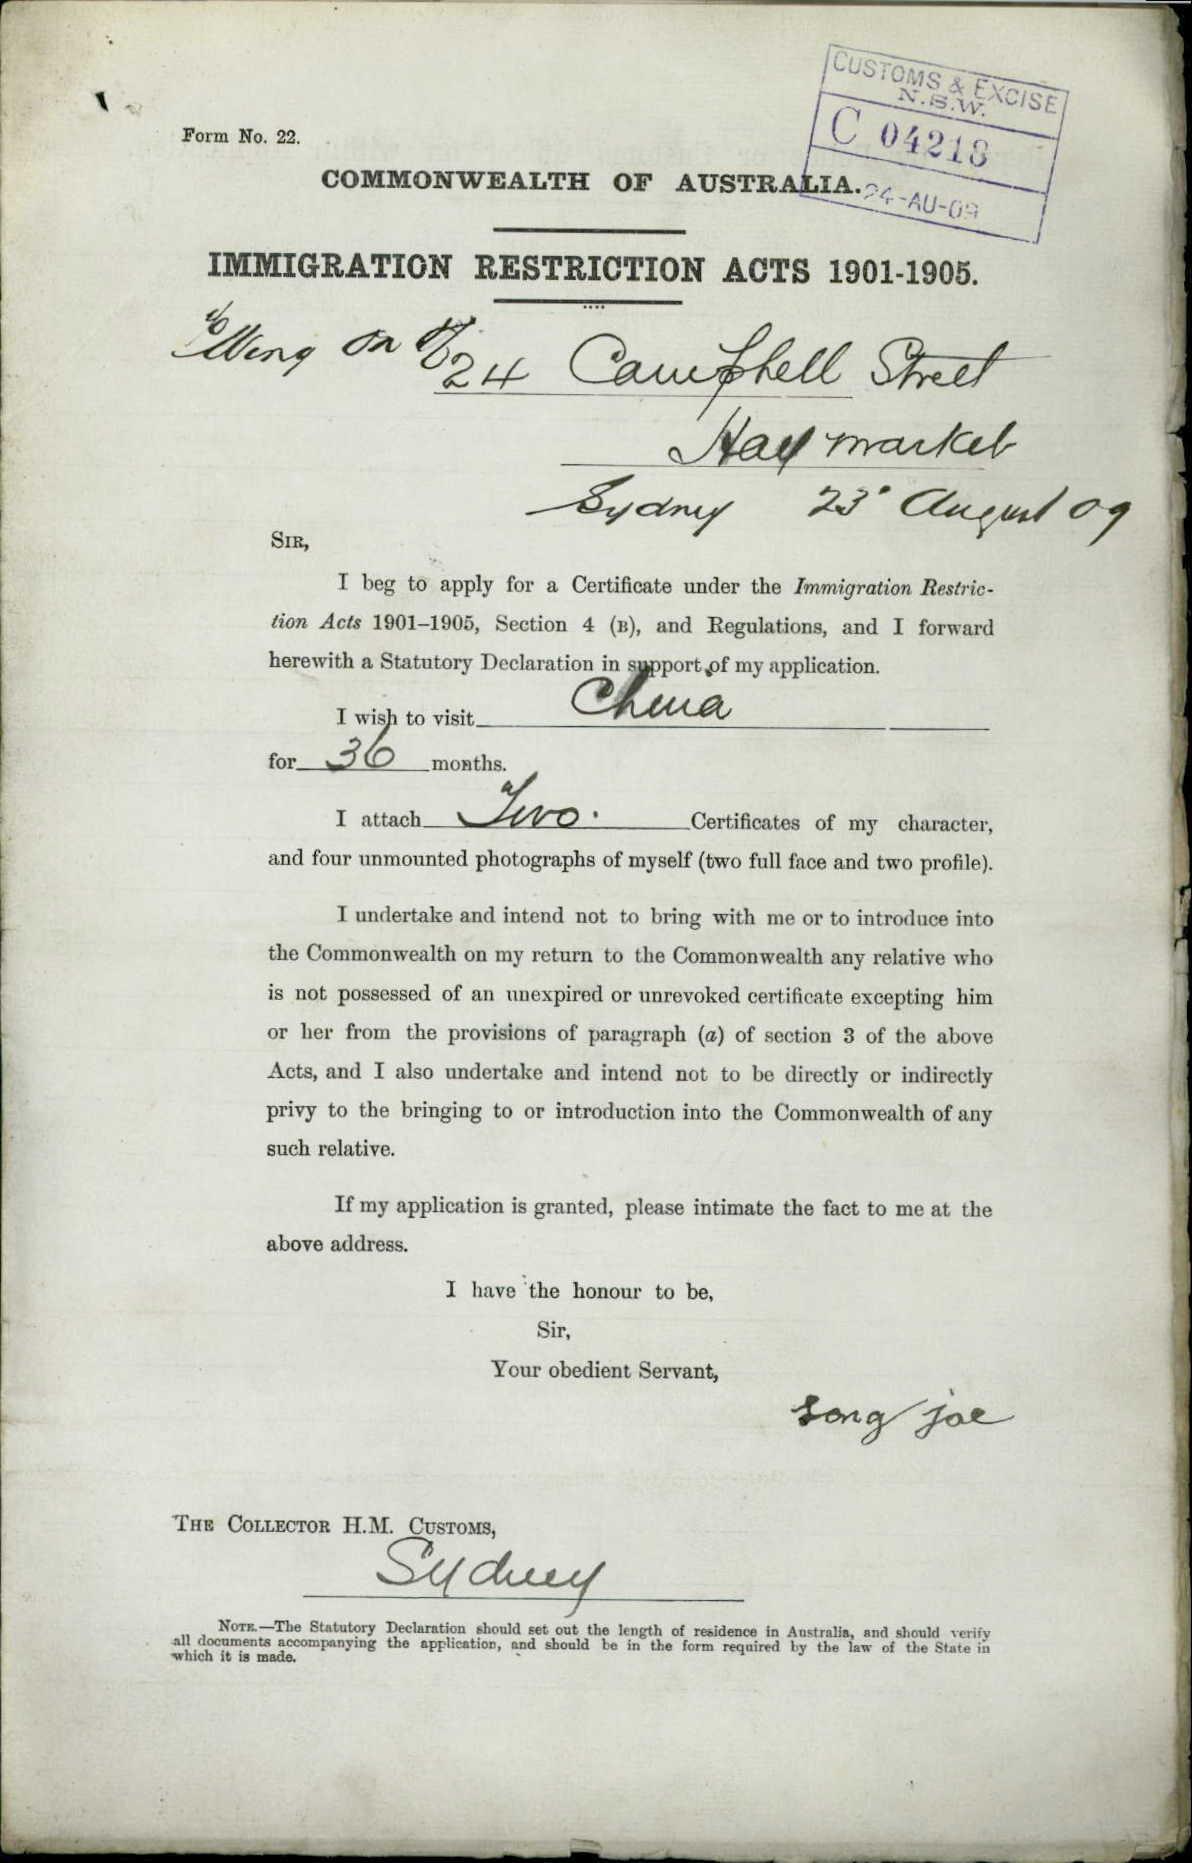 CUSTOMS & EXCISE
N.S.W.
C 04213
24-AU-09
Form No. 22.
COMMONWEALTH OF AUSTRALIA.
IMMIGRATION RESTRICTION ACTS 1901-1905.
c/o Wing On &Co
24 Campbell Street
Haymarket
Sydney 23 August 09
SIR,
I beg to apply for a Certificate under the Immigration Restric-
tion Acts 1901–1905, Section 4 (B), and Regulations, and I forward
herewith a Statutory Declaration in support of my application.
I wish to visit China
for 36 months.
I attach Two. Certificates of my character,
and four unmounted photographs of myself (two full face and two profile).
I undertake and intend not to bring with me or to introduce into
the Commonwealth on my return to the Commonwealth any relative who
is not possessed of an unexpired or unrevoked certificate excepting him
or her from the provisions of paragraph (a) of section 3 of the above
Acts, and I also undertake and intend not to be directly or indirectly
privy to the bringing to or introduction into the Commonwealth of any
such relative.
If my application is granted, please intimate the fact to me at the
above address.
I have the honour to be,
Sir,
Your obedient Servant,
song joe
THE COLLECTOR H.M. CUSTOMS,
Sydney
NOTE.—The Statutory Declaration should set out the length of residence in Australia, and should verify
all documents accompanying the application, and should be in the form required by the law of the State in
which it is made.